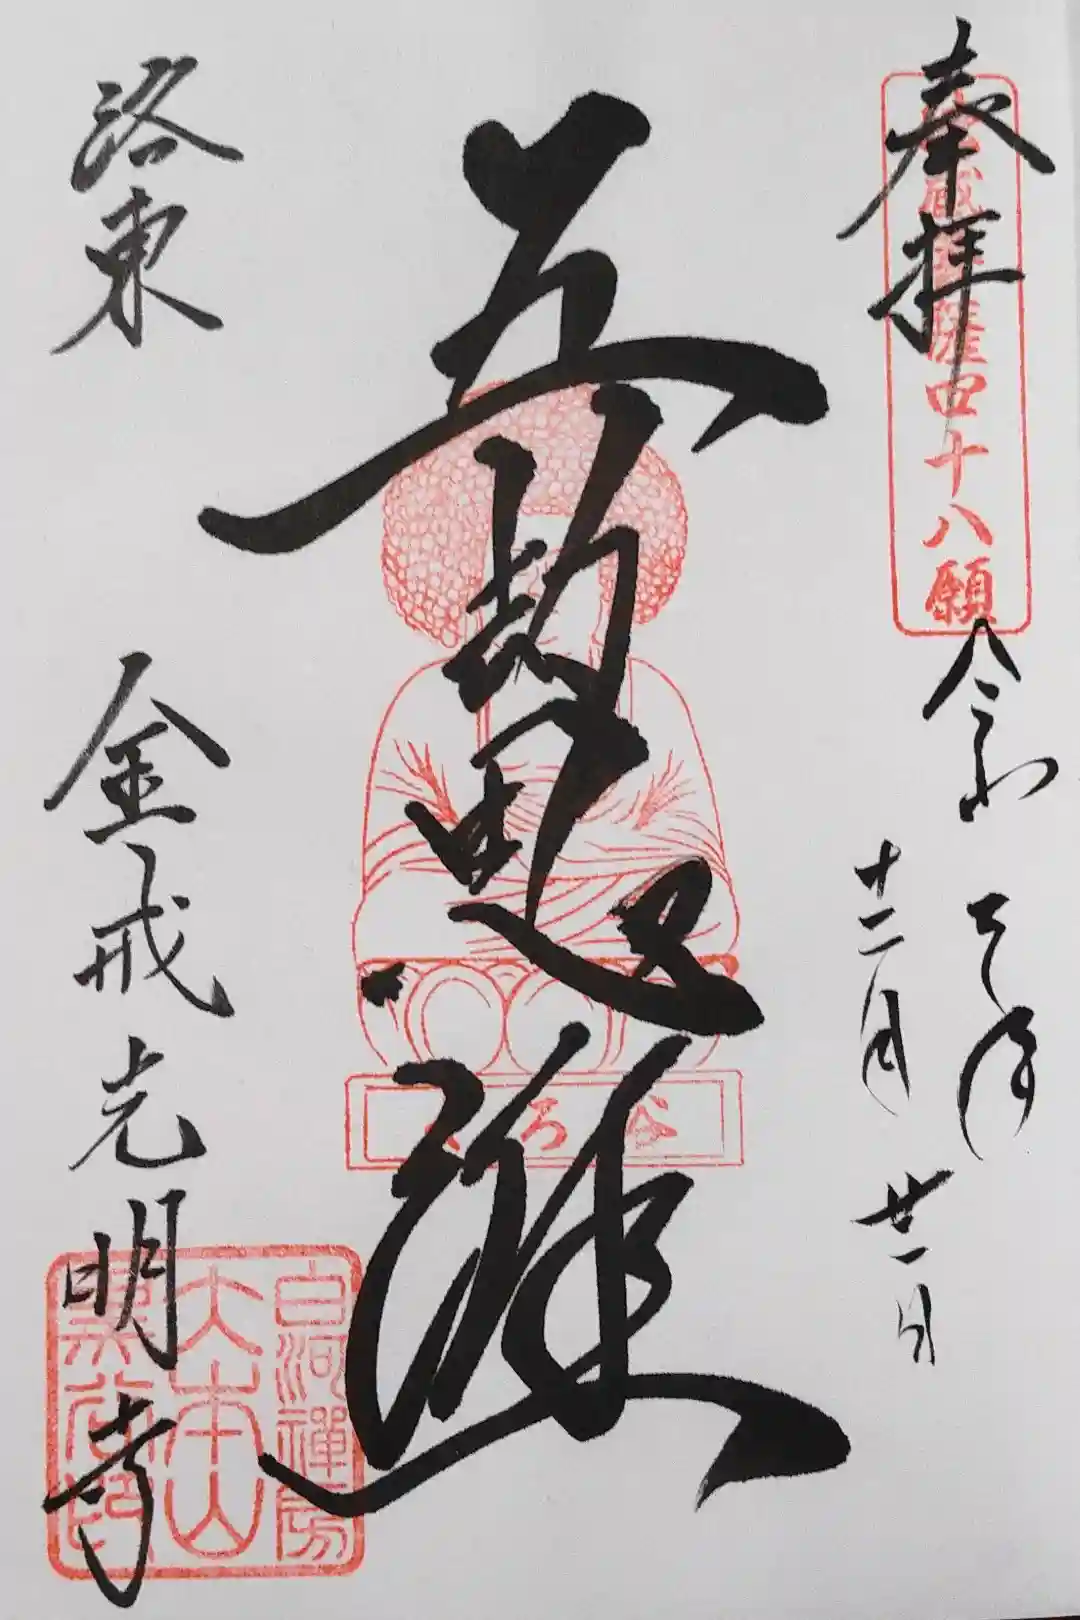 奉拝
法蔵菩薩四十八願
令和元年
十二月廿一日
五劫思惟
くろ谷
洛東
金戒光明寺
白河禪房
大本山